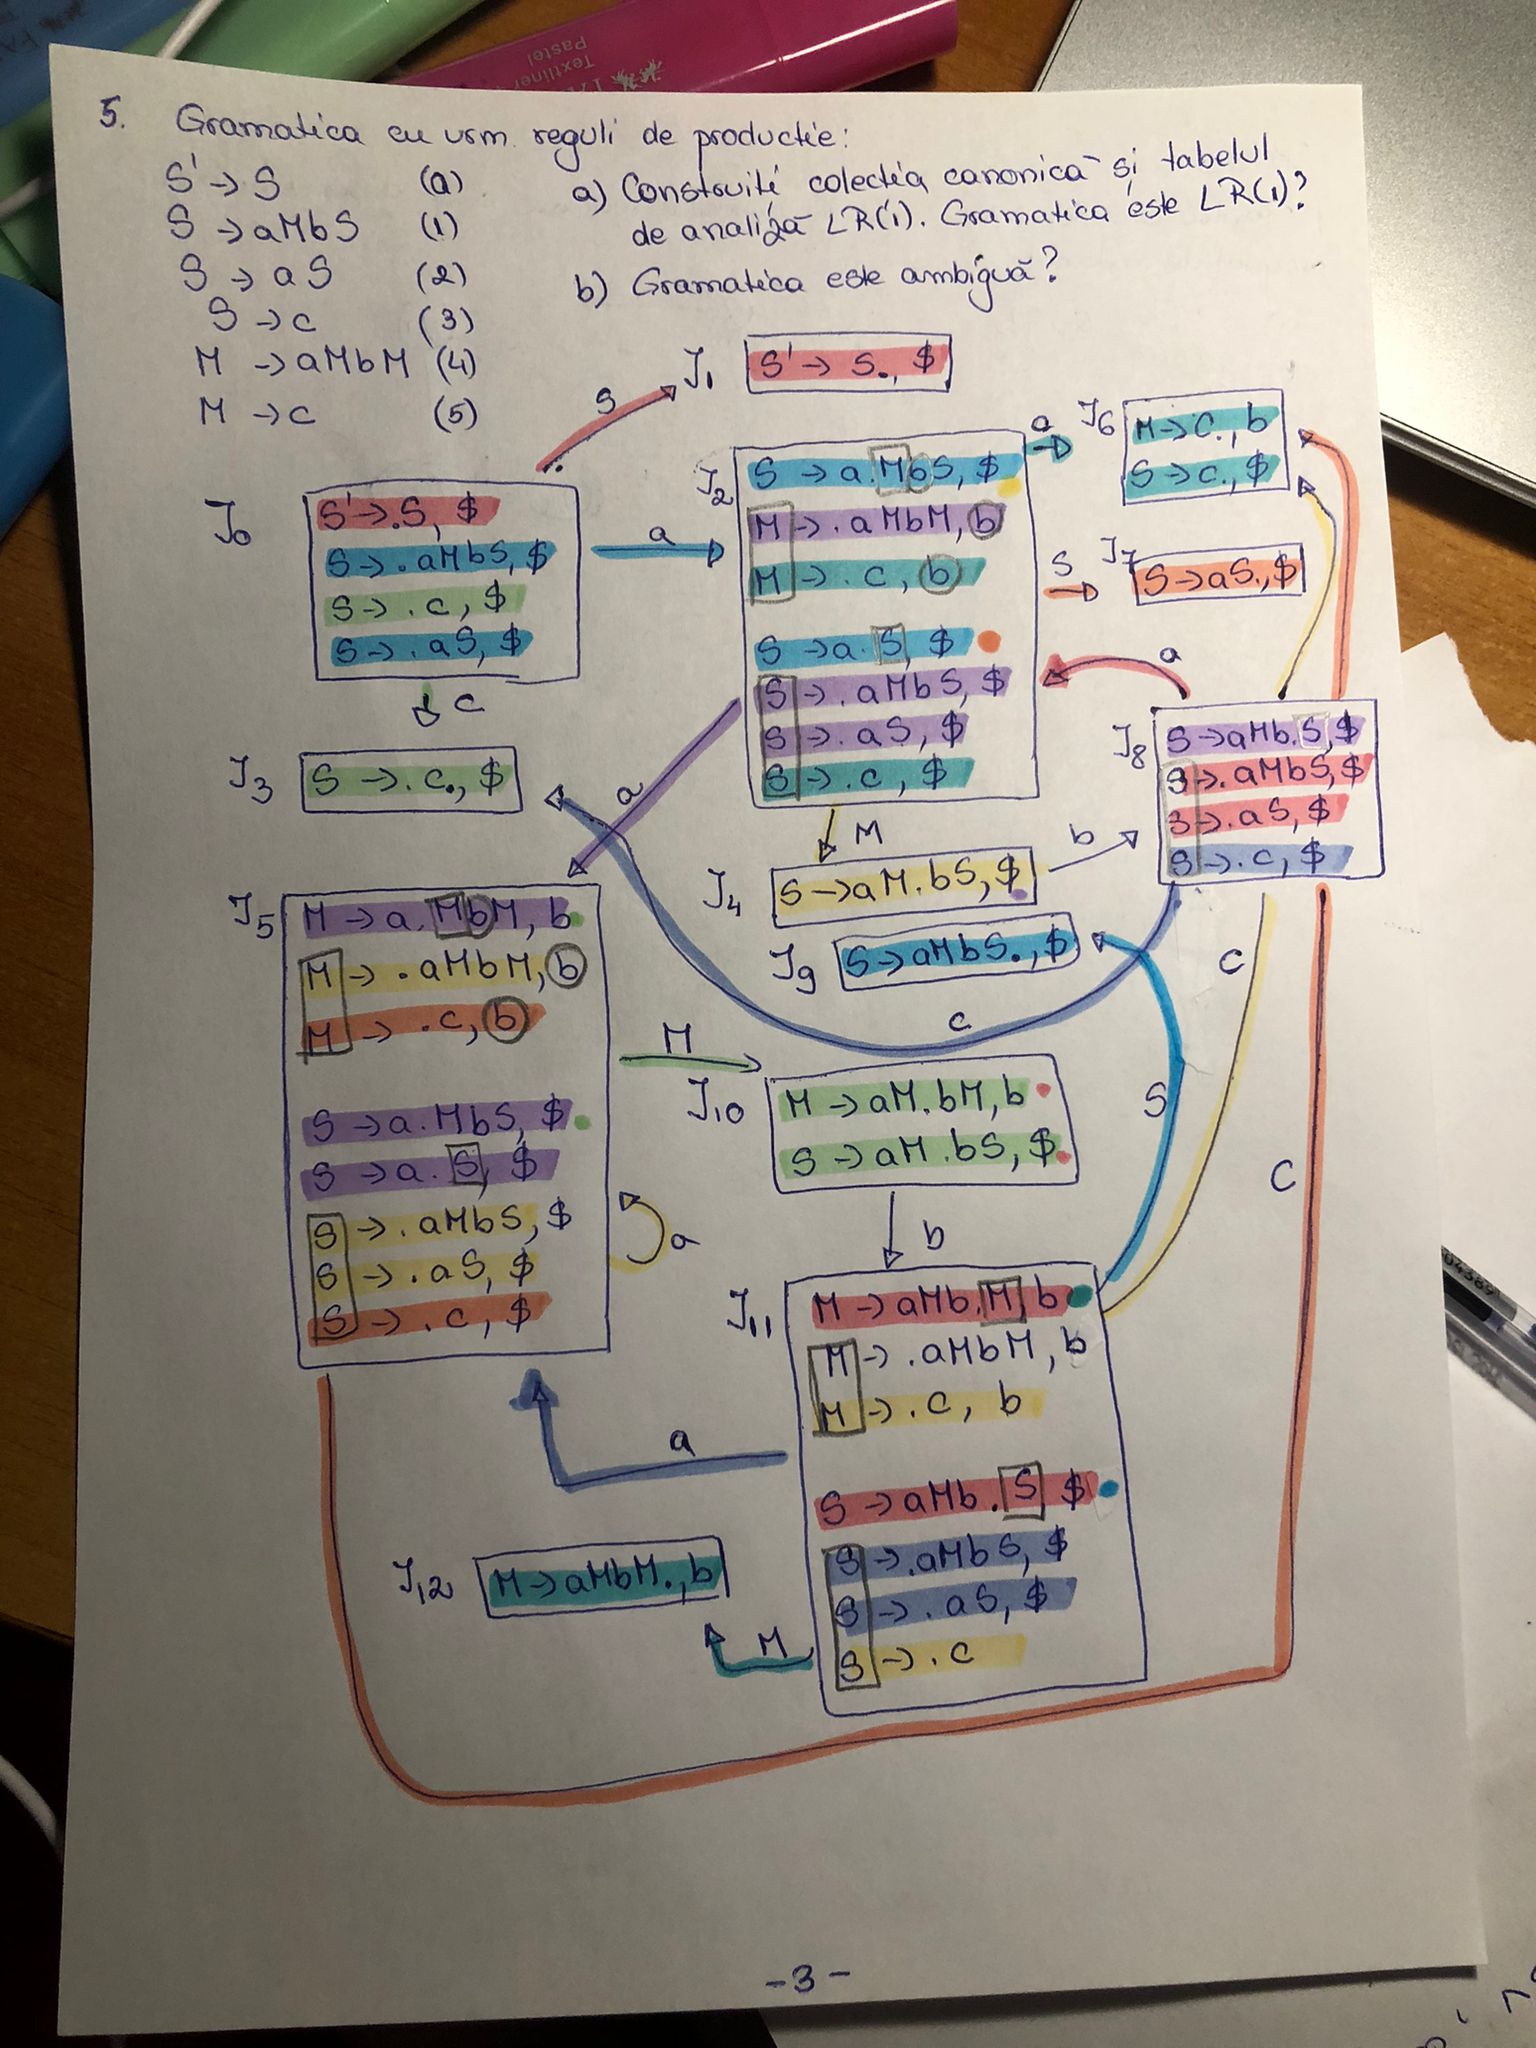 Textliner
Pastel
5. Gramatica cu urm. reguli de productie:
S' → S (a)
S → aMbS (1)
S → aS (2)
S → c (3)
M → aMbM (4)
M → c (5)
a) Construiți colectia canonică și tabelul
de analiză LR(1). Gramatica este LR(1)?
b) Gramatica este ambiguă?
S
I1
S' → S., $
I0
S' → .S, $
S → .aMbS, $
S → .c, $
S → .aS, $
a
c
I2
S → a.MbS, $
M → .aMbM, b
M → .c, b
S → a.S, $
S → .aMbS, $
S → .aS, $
S → .c, $
a
I6
M → c., b
S → c., $
S
I7
S → aS., $
a
I3
S → .c., $
a
M
I4
S → aM.bS, $
b
I8
S → aMb.S, $
S → .aMbS, $
S → .aS, $
S → .c, $
I9
S → aMbS., $
c
c
S
C
I5
M → a.MbM, b
M → .aMbM, b
M → .c, b
S → a.MbS, $
S → a.S, $
S → .aMbS, $
S → .aS, $
S → .c, $
a
M
I10
M → aM.bM, b
S → aM.bS, $
b
I11
M → aMb.M, b
M → .aMbM, b
M → .c, b
S → aMb.S $
S → .aMbS, $
S → .aS, $
S → .c
a
I12
M → aMbM., b
M
-3-